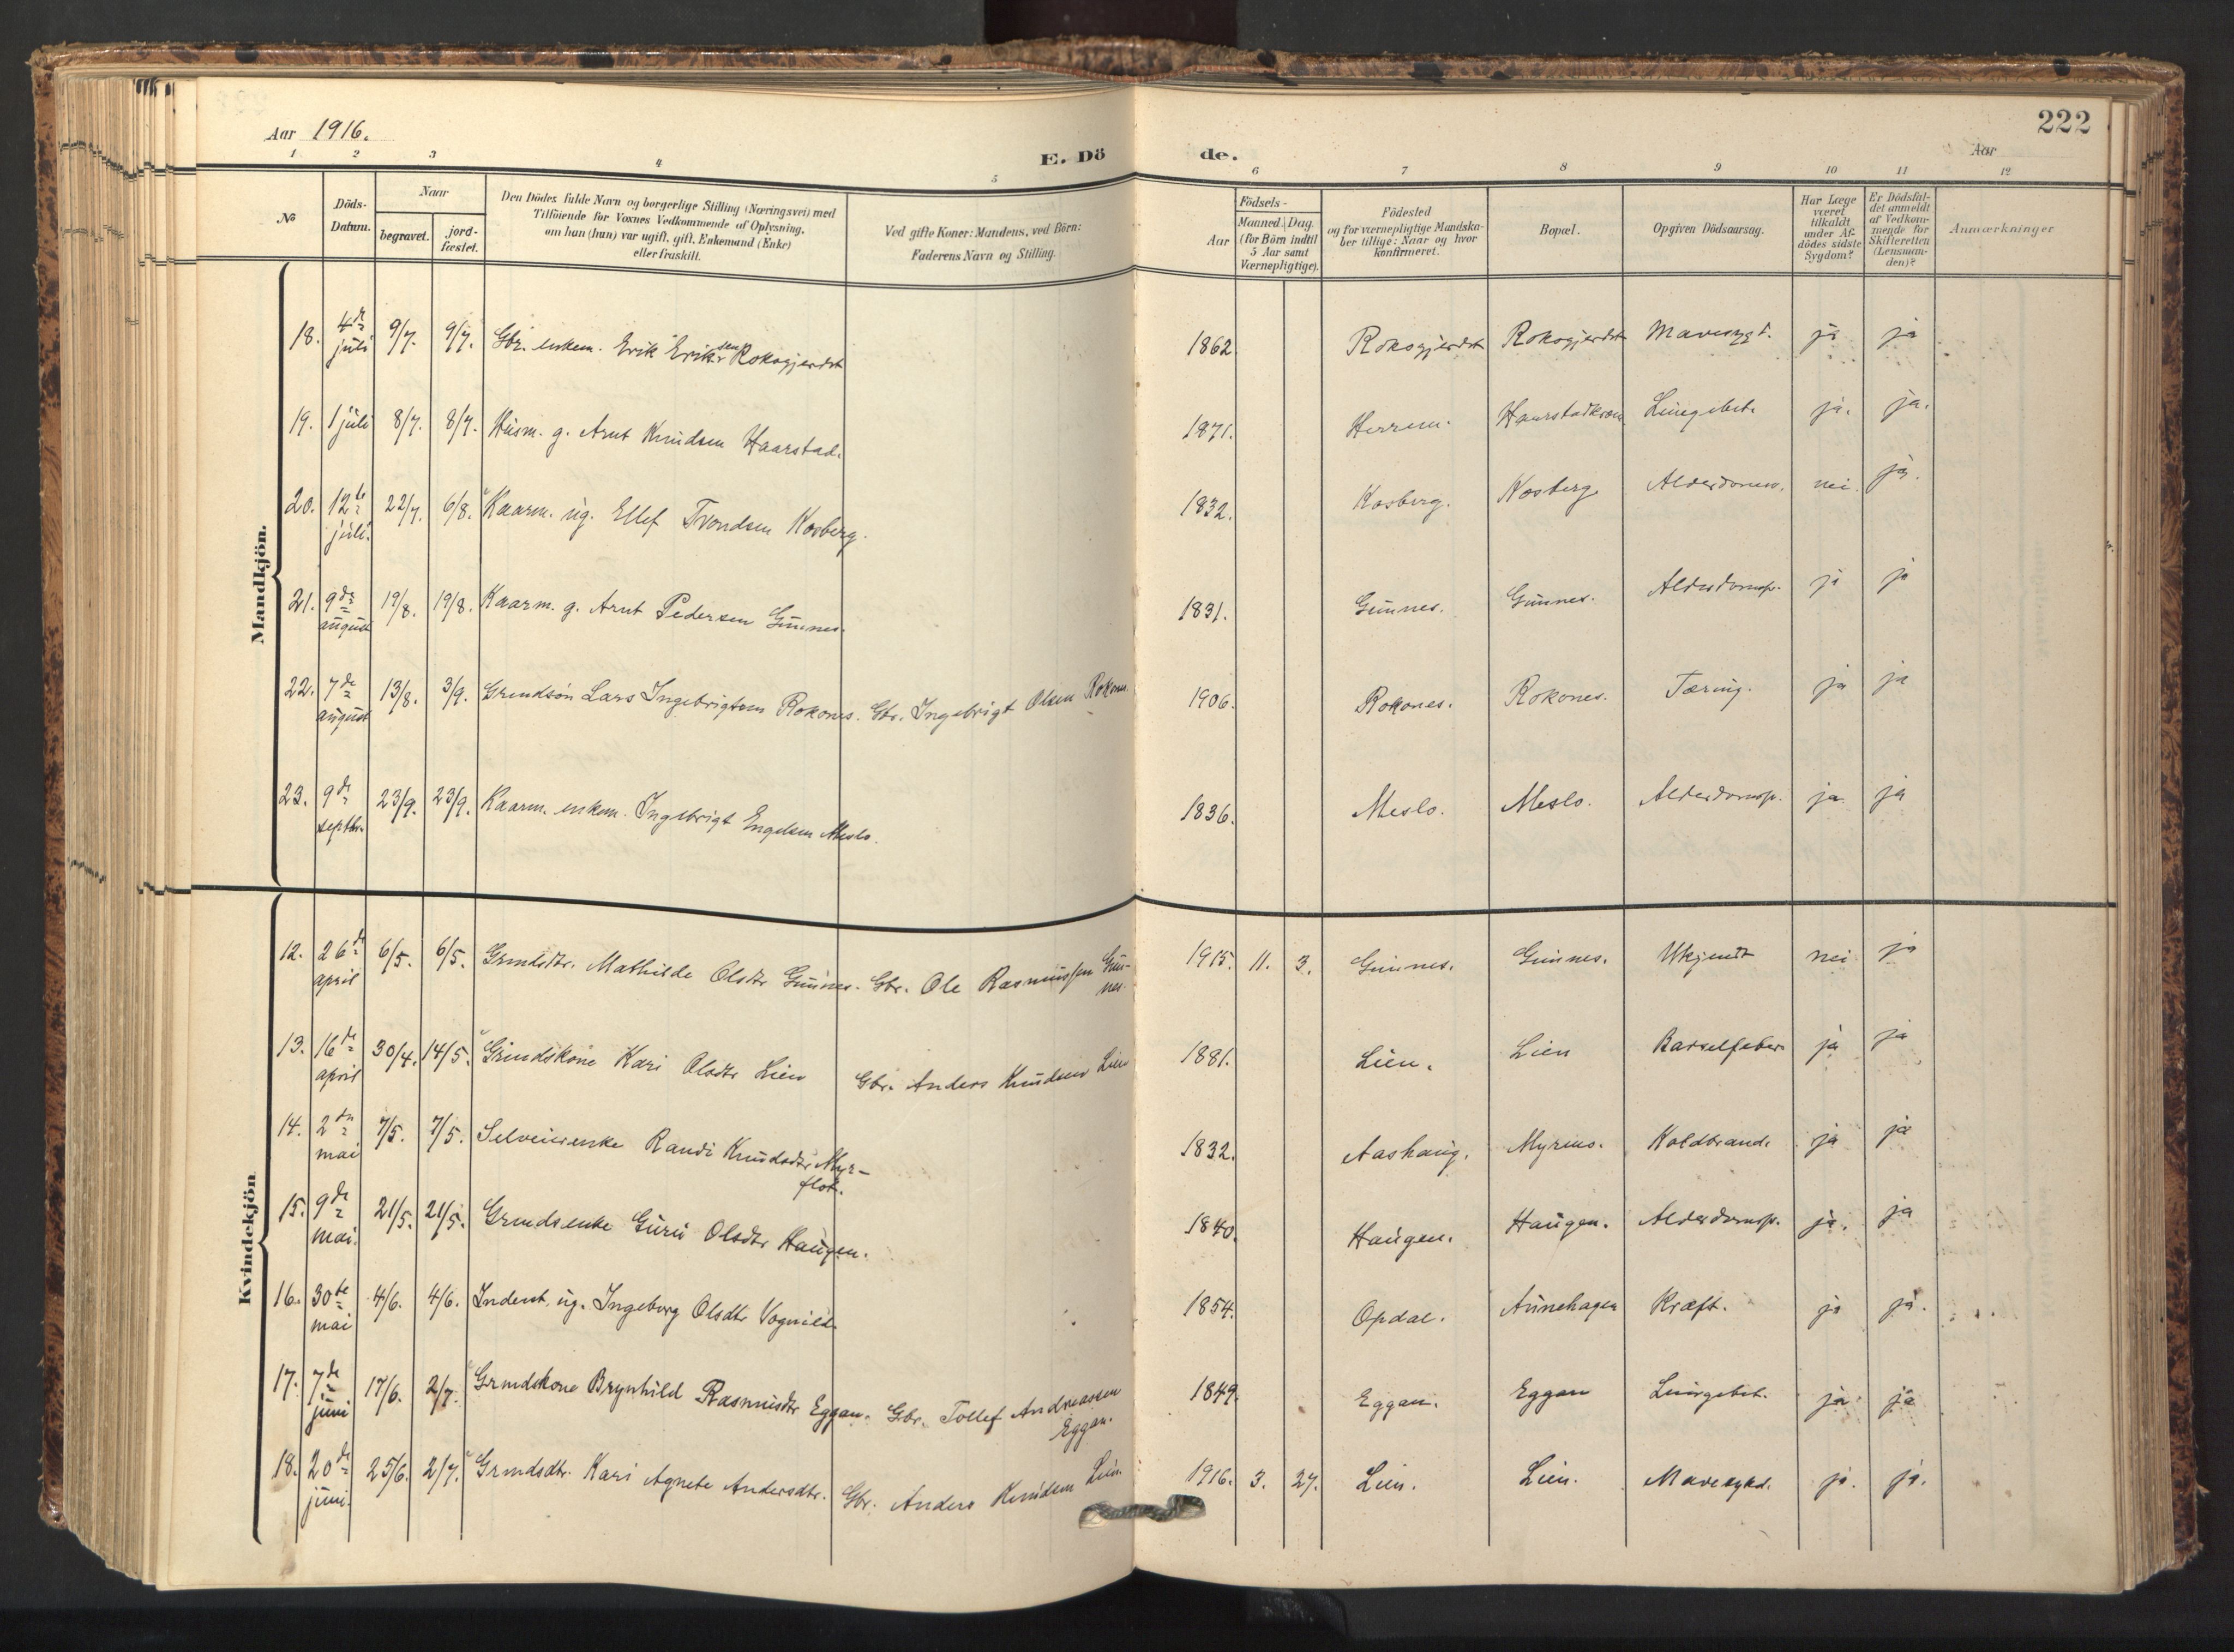 222
Aar 1916.
E. Döde.
Aar
1 2 3 4 5 6 7 8 9 10 11 12
№
Döds-
Datum.
Naar
begravet.
jord-
fæstet.
Den Dödes fulde Navn og borgerlige Stilling (Næringsvei) med
Tilföiende for Voxnes Vedkommende af Oplysning,
om han (hun) var ugift, gift, Enkemand (Enke)
eller fraskilt.
Ved gifte Koner: Mandens, ved Börn:
Faderens Navn og Stilling.
Födsels-
Aar
Maaned. Dag.
(for Börn indtil
5 Aar samt
Værnepligtige).
Födested
og for værnepligtige Mandska-
ber tillige: Naar og hvor
konfirmeret.
Bopæl.
Opgiven Dödsaarsag.
Har Læge
været
tilkaldt
under Af-
dödes sidste
Sygdom?
Er Dödsfal-
det anmeldt
af Vedkom-
mende for
Skifteretten
(Lensman-
den)?
Anmærkninger
Mandkjön.
18. 4de juli 9/7. 9/7. Gbr. enkem. Erik Eriksen Roksgjerdet 1862. Roksgjerdet Roksgjerdet Mavesygd. ja ja
19. 1 juli 8/7. 8/7. Husm. g. Arnt Knudsen Haarstad. 1871. Herrem. Lungebet. ja. ja.
20. 12te juli. 22/7. 6/8. Kaarm. ug. Ellef Trondsen Kosberg. 1832. Kosberg. Kosberg nei. ja.
21. 9de august 19/8. 19/8. Kaarm. g. Arnt Pedersen Gunnes. 1831. Gunnes. Gunnes. Alderdomsp. ja ja
22. 7de august 13/8. 3/9. Grmdsøn Lars Ingebrigtsen Rokones. Gbr. Ingebrigt Olsen Rokones. 1906. Rokones. Rokones. Tæring. ja ja
23. 9de septbr. 23/9. 23/9. Kaarm. enkem. Ingebrigt Engelsen Meslo. 1836. Meslo. Meslo. Alderdomsp. ja ja
Kvindekjön
12. 26de april 6/5. 6/5. Grmdsdtr. Mathilde Olsdtr Gunnes. Gbr. Ole Rasmussen Gun-
nes. 1915. 11. 3. Gunnes. Gunnes. Ukjendt nei ja
13. 16de april 30/4. 14/5. Grmdskone Kari Olsdtr Lien Gbr. Anders Knudsen Lien 1881. Lien. Lien Barselfeber ja ja
14. 2den mai 7/5. 7/5. Selveierenke Randi Knudsdtr Myr-
flot. 1832. Aashaug. Koldbrand. ja ja
15. 9de mai. 21/5. 21/5. Grmdsenke Guru Olsdtr Haugen. 1840. Haugen. Haugen. Alderdomsp. ja. ja
16. 30te mai 4/6. 4/6. Inderst, ug. Ingeborg Olsdtr Vognild. 1854. Opdal. Aunehagen Kræft. ja ja.
17. 7de juni 17/6. 2/7. Grmdskone Brynhild Rasmusdtr Eggan. Gbr. Tollef Andreassen
Eggan. 1849. Eggan. Eggan Lungebet. ja ja
18. 20de juni. 25/6. 2/7. Grmdsdtr. Kari Agnete Andersdtr. Gbr. Anders Knudsen Lien. 1916. 3. 27. Lien. Lien. Mavesygd. ja. ja.